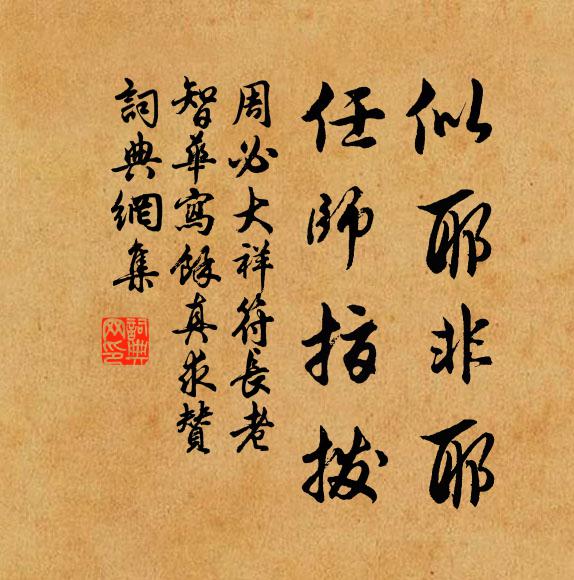 似耶非耶
任師指撥
周必大祥符長老
智華寫餘真求贊
詞典網集
詞典
网印